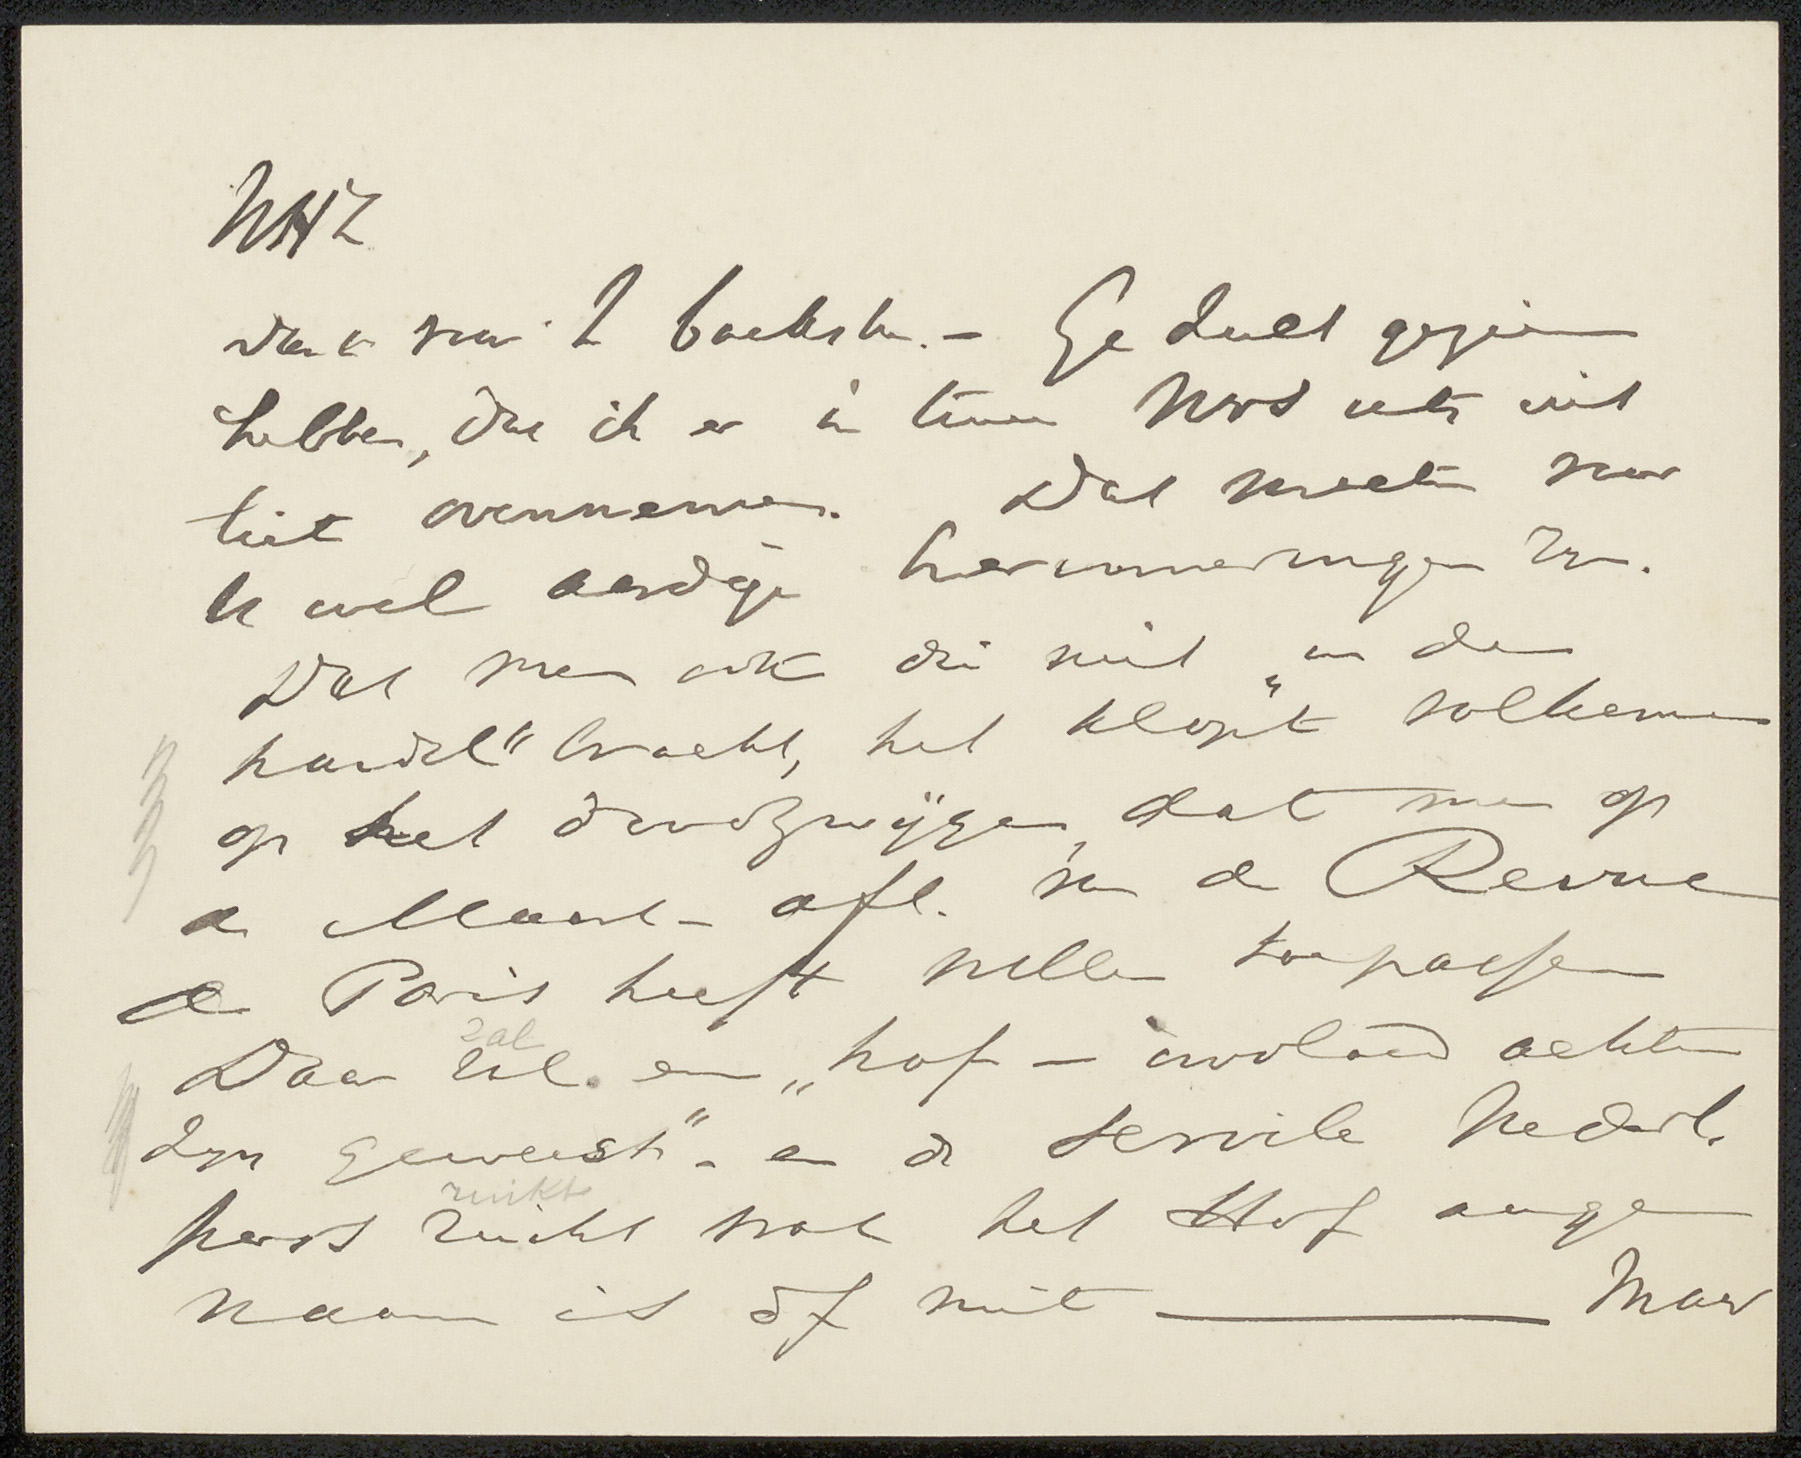 WHZ
Dank voor 2 boeksken. - Ge zult gezien
hebben, dat ik er in twee Nos iets uit
liet overnemen. Dat moeten voor
U wel aardige herinneringen zijn.
Dat men ook die niet „in den
handel" bracht, het klopt volkomen
op het doodzwijgen, dat men op
de Maart-afl. van de Revue
de Paris heeft willen toepassen
zal
Daar zal een „hof-invloed achter
zyn geweest". en de servile Nederl.
ruikt
pers ruikt wat het Hof aange
naam is òf niet ——— Maar